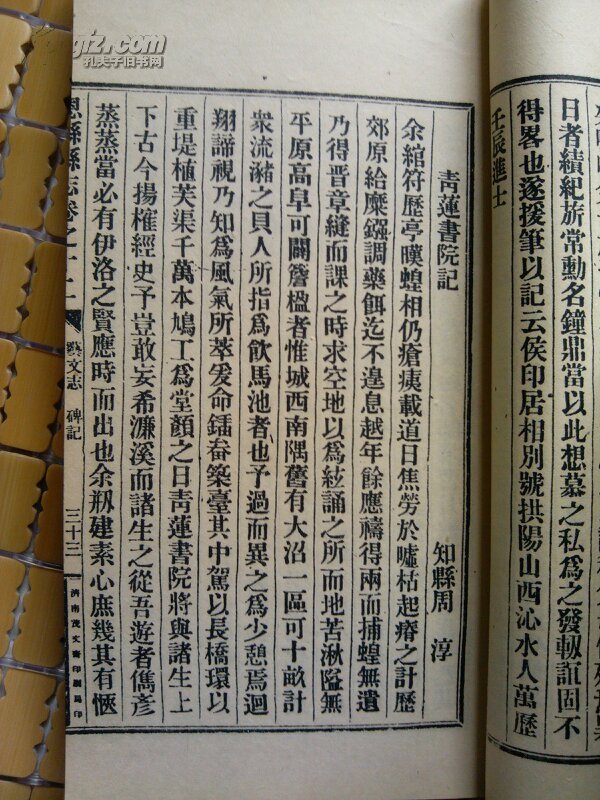 得畧也遂援筆以記云侯印居相別號拱陽山西沁水人萬歷
壬辰進士
青蓮書院記
知縣周淳
余綰符歷亭暵蝗相仍瘡痍載道日焦勞於噓枯起瘠之計歷
郊原給糜鏹調藥餌迄不遑息越年餘應禱得雨而捕蝗無遺
乃得晉章縫而課之時求空地以為絃誦之所而地苦湫隘無
平原高阜可闢簷楹者惟城西南隅舊有大沼一區可十畝計
衆流瀦之貝人所指為飲馬池者也予過而異之為少憩焉迴
翔諦視乃知為風氣所萃爰命鍤畚築臺其中駕以長橋環以
重堤植芙渠千萬本鳩工為堂顏之曰青蓮書院將與諸生上
下古今揚榷經史予豈敢妄希濂溪而諸生之從吾遊者儁彥
蒸蒸當必有伊洛之賢應時而出也余剏建素心庶幾其有愜
恩縣縣志卷之十二
藝文志 碑記
三十三
濟南茂文齋印刷局印
孔夫子旧书网